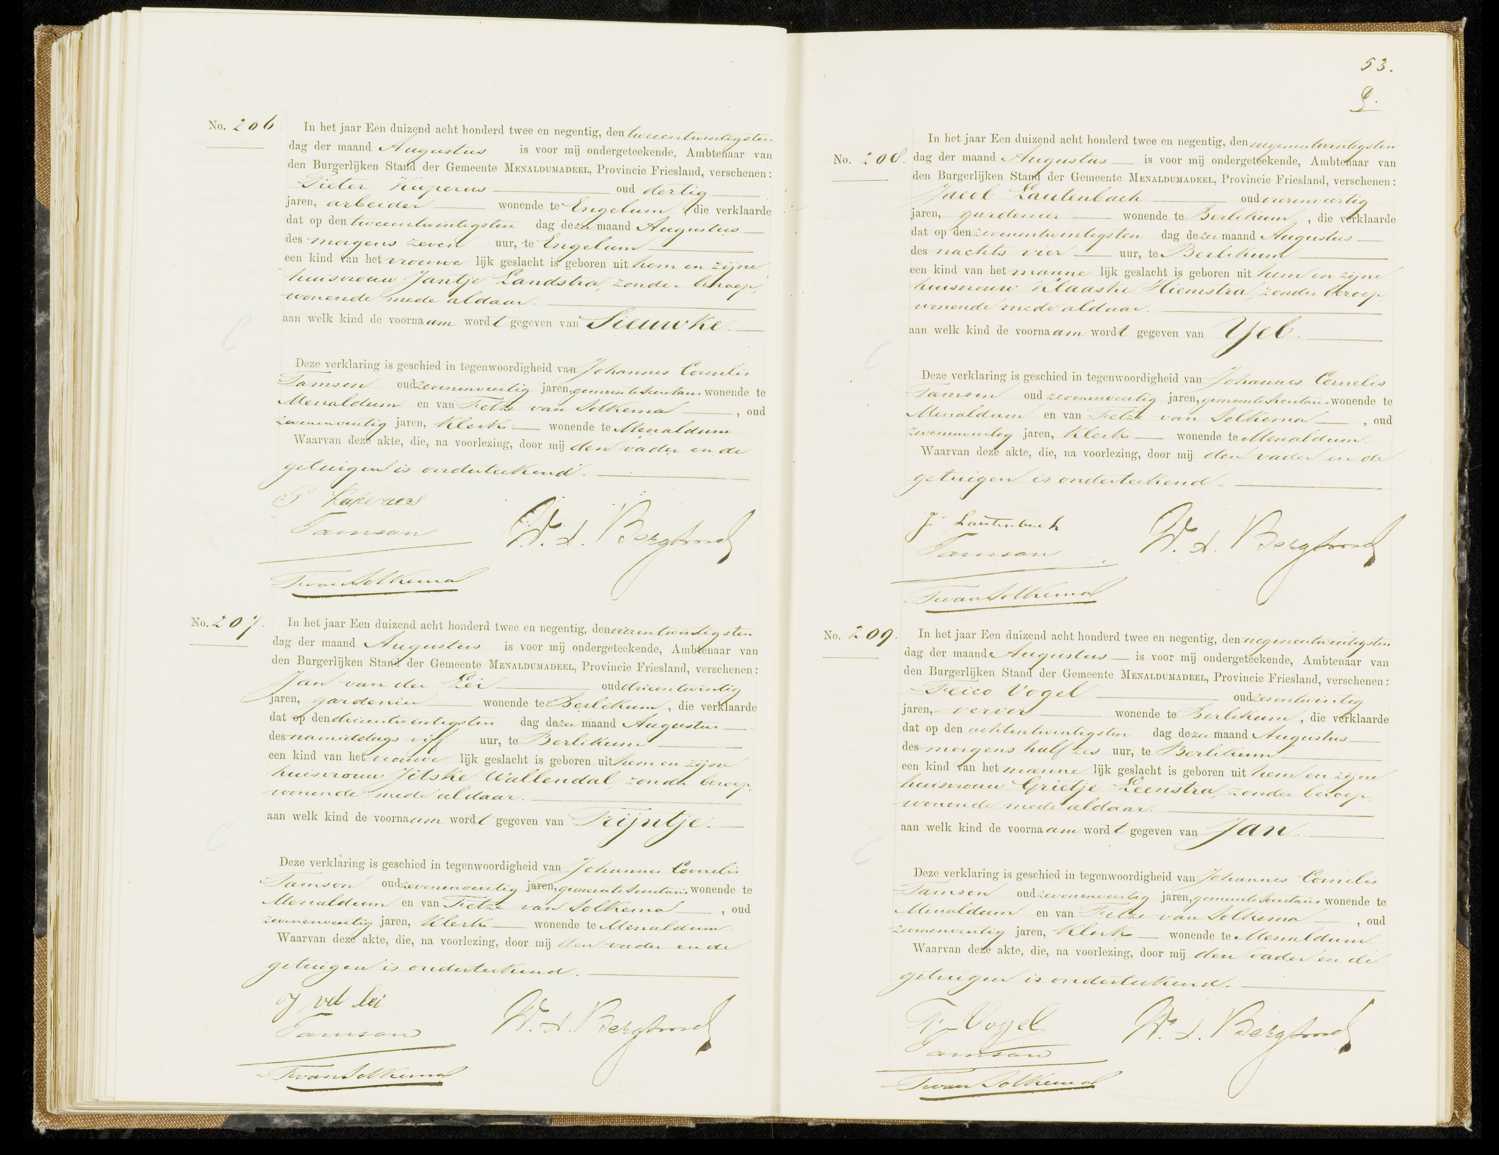 No. 206
In het jaar Een duizend acht honderd twee en negentig, den tweeentwintigsten
dag der maand Augustus is voor mij ondergeteekende, Ambtenaar van
den Burgerlijken Stand der Gemeente MENALDUMADEEL, Provincie Friesland, verschenen:
Pieter Kuperus oud dertig
jaren, arbeider wonende te Engelum, die verklaarde
dat op den tweeentwintigsten dag dezer maand Augustus
des morgens zeven uur, te Engelum
een kind van het vrouwelijk geslacht is geboren uit hem en zijne
huisvrouw Jantje Landstra, zonder beroep,
wonende mede aldaar.
aan welk kind de voornaam wordt gegeven van Sieuwke.
Deze verklaring is geschied in tegenwoordigheid van Johannes Cornelis
Tamson oud zevenenveertig jaren, gemeentesecretaris wonende te
Menaldum en van Fetze van Solkema, oud
zevenenveertig jaren, klerk wonende te Menaldum
Waarvan deze akte, die, na voorlezing, door mij den vader en de
getuigen is onderteekend.
P Kuperus
Tamson
F van Solkema
No. 207.
In het jaar Een duizend acht honderd twee en negentig, den vierentwintigsten
dag der maand Augustus is voor mij ondergeteekende, Ambtenaar van
den Burgerlijken Stand der Gemeente MENALDUMADEEL, Provincie Friesland, verschenen:
Jan van der Lei oud drieentwintig
jaren, gardenier wonende te Berlikum, die verklaarde
dat op den drieentwintigsten dag dezer maand Augustus
des namiddags vijf uur, te Berlikum
een kind van het vrouwelijk geslacht is geboren uit hem en zijne
huisvrouw Jitske Wallendal, zonder beroep,
wonende mede aldaar.
aan welk kind de voornaam wordt gegeven van Trijntje.
Deze verklaring is geschied in tegenwoordigheid van Johannes Cornelis
Tamson oud zevenenveertig jaren, gemeentesecretaris wonende te
Menaldum en van Fetze van Solkema, oud
zevenenveertig jaren, klerk wonende te Menaldum.
Waarvan deze akte, die, na voorlezing, door mij den vader en de
getuigen is onderteekend.
J vd Lei
Tamson
F van Solkema
53.
No. 208.
In het jaar Een duizend acht honderd twee en negentig, den negenentwintigsten
dag der maand Augustus is voor mij ondergeteekende, Ambtenaar van
den Burgerlijken Stand der Gemeente MENALDUMADEEL, Provincie Friesland, verschenen:
Jacob Lautenbach oud
jaren, gardenier wonende te Berlikum, die verklaarde
dat op den zevenentwintigsten dag dezer maand Augustus
des nachts vier uur, te Berlikum
een kind van het mannelijk geslacht is geboren uit hem en zijne
huisvrouw Klaaske Hiemstra, zonder beroep,
wonende mede aldaar.
aan welk kind de voornaam wordt gegeven van Yeb.
Deze verklaring is geschied in tegenwoordigheid van Johannes Cornelis
Tamson oud zevenenveertig jaren, gemeentesecretaris wonende te
Menaldum en van Fetze van Solkema, oud
zevenenveertig jaren, klerk wonende te Menaldum.
Waarvan deze akte, die, na voorlezing, door mij den vader en de
getuigen is onderteekend.
J. Lautenbach
Tamson
F van Solkema
No. 209.
In het jaar Een duizend acht honderd twee en negentig, den negenentwintigsten
dag der maand Augustus is voor mij ondergeteekende, Ambtenaar van
den Burgerlijken Stand der Gemeente MENALDUMADEEL, Provincie Friesland, verschenen:
Feico Vogel oud zesentwintig
jaren, verver wonende te Berlikum, die verklaarde
dat op den achtentwintigsten dag dezer maand Augustus
des morgens half zes uur, te Berlikum
een kind van het mannelijk geslacht is geboren uit hem en zijne
huisvrouw Grietje Leenstra, zonder beroep,
wonende mede aldaar.
aan welk kind de voornaam wordt gegeven van Jan.
Deze verklaring is geschied in tegenwoordigheid van Johannes Cornelis
Tamson oud zevenenveertig jaren, gemeentesecretaris wonende te
Menaldum en van Fetze van Solkema, oud
zevenenveertig jaren, klerk wonende te Menaldum.
Waarvan deze akte, die, na voorlezing, door mij den vader en de
getuigen is onderteekend.
F. Vogel
Tamson
F van Solkema